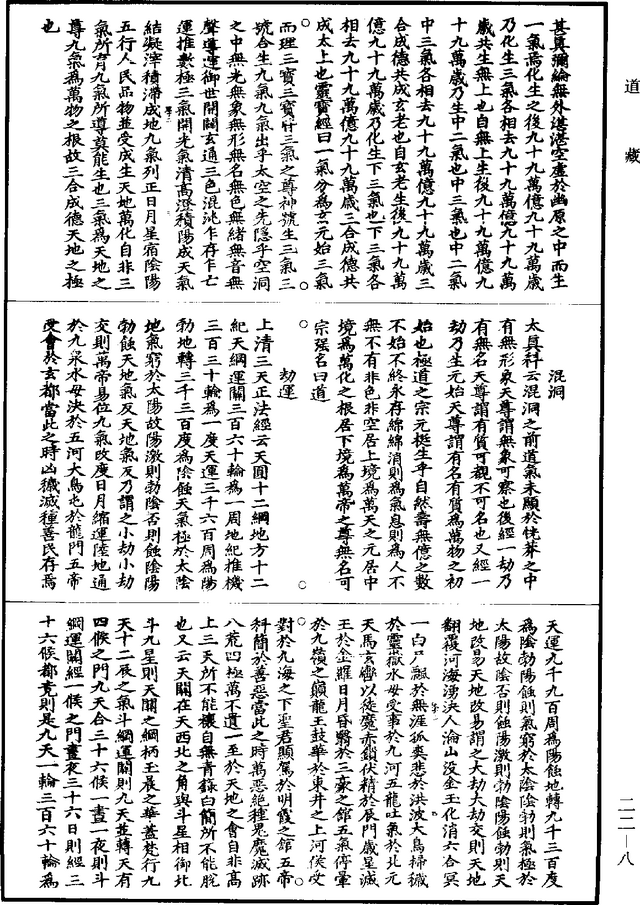 道藏
甚真瀰綸無外湛湛空虛於幽原之中而生
一氣焉化生之後九十九萬億九十九萬歲
乃化生三氣各相去九十九萬億九十九萬
歲共生無上也自無上生後九十九萬億九
十九萬歲乃生中二氣也中三氣也中二氣
中三氣各相去九十九萬億九十九萬歲三
合成德共成玄老也自玄老生後九十九萬
億九十九萬歲乃化生下三氣也下三氣各
相去九十九萬億九十九萬歲三合成德共
成太上也靈寶經曰一氣分為玄元始三氣
而理三寶三寶皆三氣之尊神號生三氣三
號合生九氣九氣出乎太空之先隱乎空洞
之中無光無象無形無名無色無緒無音無
聲導運御世開闢玄通三色混沌乍存乍亡
運推數極三氣開光氣清高澄積陽成天氣
結凝滓積滯成地九氣列正日月星宿陰陽
五行人民品物並受成生天地萬化自非三
氣所育九氣所導莫能生也三氣為天地之
尊九氣為萬物之根故三合成德天地之極
也
混洞
太真科云混洞之前道氣未顯於恍莽之中
有無形象天尊謂無象可察也後經一劫乃
有無名天尊謂有質可覩不可名也又經一
劫乃生元始天尊謂有名有質為萬物之初
始也極道之宗元挺生乎自然壽無億之數
不始不終永存綿綿消則為氣息則為人不
無不有非色非空居上境為萬天之元居中
境為萬化之根居下境為萬帝之尊無名可
宗強名曰道
劫運
上清三天正法經云天圓十二綱地方十二
紀天綱運關三百六十輪為一周地紀推機
三百三十輪為一度天運三千六百周為陽
勃地轉三千三百度為陰蝕天氣極於太陰
地氣窮於太陽故陽激則勃陰否則蝕陰陽
勃蝕天地氣反天地氣反乃謂之小劫小劫
交則萬帝易位九氣改度日月縮運陸地通
於九泉水母決於五河大鳥屯於龍門五帝
受會於玄都當此之時凶穢滅種善民存焉
天運九千九百周為陽蝕地轉九千三百度
為陰勃陽蝕則氣窮於太陰陰勃則氣極於
太陽故陰否則蝕陽激則勃陰陽蝕勃則天
地改易天地改易謂之大劫大劫交則天地
翻覆河海湧決人淪山沒金玉化消六合冥
一白尸飄於無涯孤爽悲於洪波大鳥掃穢
於靈嶽水母受事於九河五龍吐氣於北元
天馬玄轡以徒魔赤鎖伏精於辰門歲星滅
王於金羅日月昏翳於三豪之館五氣停暈
於九嶺之巔龍王鼓華於東井之上河侯受
對於九海之下聖君顯駕於明霞之館五帝
科簡於善惡當此之時萬惡絕種鬼魔滅跡
八荒四極萬不遺一至於天地之會自非高
上三天所不能禳自無青籙白簡所不能脫
也又云天關在天西北之角與斗星相御北
斗九星則天關之綱柄玉晨之華蓋梵行九
天十二辰之氣斗綱運關則九天並轉天有
四候之門九天合三十六候一晝一夜則斗
綱運關經一候之門晝夜三十六日則經三
十六候都竟則是九天一輪三百六十輪為
二二—八